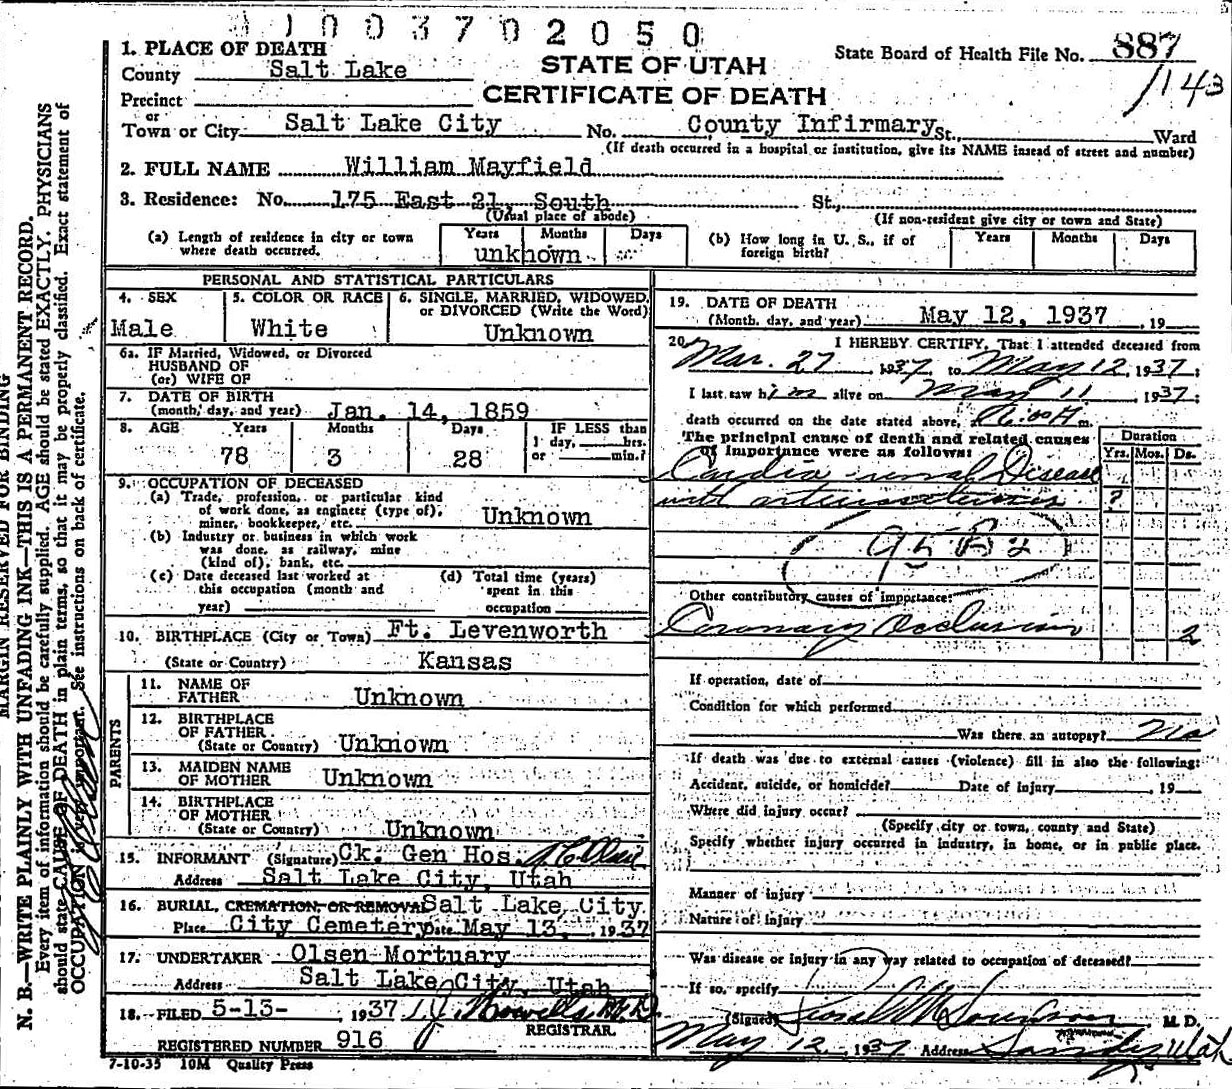 1003702050
1. PLACE OF DEATH
County Salt Lake
STATE OF UTAH
State Board of Health File No. 887
Precinct
CERTIFICATE OF DEATH
143
or
Town or City Salt Lake City No. County Infirmary St., Ward
(If death occurred in a hospital or institution, give its NAME instead of street and number)
2. FULL NAME William Mayfield
3. Residence: No. 175 East 21 South St.,
(Usual place of abode) (If non-resident give city or town and State)
(a) Length of residence in city or town where death occurred.
Years Months Days
unknown
(b) How long in U. S., if of foreign birth?
Years Months Days
PERSONAL AND STATISTICAL PARTICULARS
4. SEX
Male
5. COLOR OR RACE
White
6. SINGLE, MARRIED, WIDOWED,
or DIVORCED (Write the Word)
Unknown
6a. IF Married, Widowed, or Divorced
HUSBAND OF
(or) WIFE OF
7. DATE OF BIRTH
(month, day, and year) Jan. 14, 1859
8. AGE Years Months Days
78 3 28
IF LESS than
1 day, hrs.
or min.?
9. OCCUPATION OF DECEASED
(a) Trade, profession, or particular kind
of work done, as engineer (type of),
miner, bookkeeper, etc. Unknown
(b) Industry or business in which work
was done, as railway, mine
(kind of), bank, etc.
(c) Date deceased last worked at
this occupation (month and
year)
(d) Total time (years)
spent in this
occupation
10. BIRTHPLACE (City or Town) Ft. Levenworth
(State or Country) Kansas
PARENTS
11. NAME OF
FATHER Unknown
12. BIRTHPLACE
OF FATHER
(State or Country) Unknown
13. MAIDEN NAME
OF MOTHER Unknown
14. BIRTHPLACE
OF MOTHER
(State or Country) Unknown
15. INFORMANT (Signature) Ck. Gen Hos.
Address Salt Lake City, Utah
16. BURIAL, CREMATION, OR REMOVAL Salt Lake City
Place City Cemetery Date May 13, 1937
17. UNDERTAKER Olsen Mortuary
Address Salt Lake City, Utah
18. FILED 5-13- 1937
REGISTRAR.
REGISTERED NUMBER 916
7-10-35 10M Quality Press
19. DATE OF DEATH
(Month, day, and year) May 12, 1937, 19
20. I HEREBY CERTIFY, That I attended deceased from
Mar. 27, 1937, to May 12, 1937;
I last saw him alive on May 11 1937;
death occurred on the date stated above, m.
The principal cause of death and related causes
of importance were as follows:
Duration
Yrs. Mos. Ds.
Cardio renal Disease
with ?
Other contributory causes of importance:
Coronary Occlusion 2
If operation, date of
Condition for which performed
Was there an autopsy? No
If death was due to external causes (violence) fill in also the following:
Accident, suicide, or homicide? Date of Injury , 19
Where did injury occur?
(Specify city or town, county and State)
Specify whether injury occurred in industry, in home, or in public place.
Manner of injury
Nature of injury
Was disease or injury in any way related to occupation of deceased?
If so, specify
(Signed) M. D.
May 12, 1937 Address Sandy, Utah
MARGIN RESERVED FOR BINDING
N. B.—WRITE PLAINLY WITH UNFADING INK—THIS IS A PERMANENT RECORD.
Every item of information should be carefully supplied. AGE should be stated EXACTLY. PHYSICIANS
should state CAUSE OF DEATH in plain terms, so that it may be properly classified. Exact statement of
OCCUPATION is very important. See instructions on back of certificate.